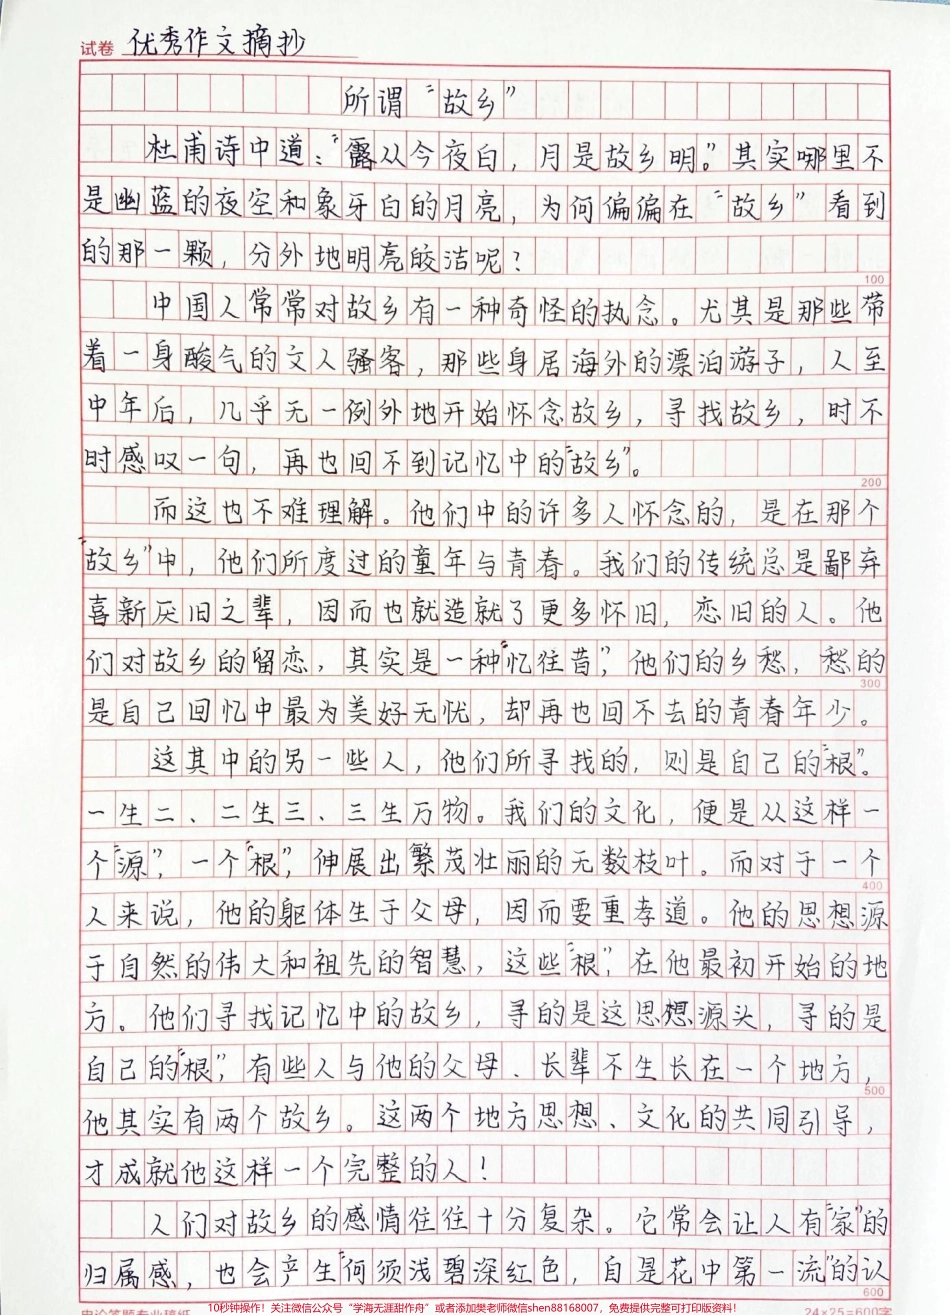 试卷 优秀作文摘抄
所谓“故乡”
杜甫诗中道：“露从今夜白，月是故乡明。”其实哪里不
是幽蓝的夜空和象牙白的月亮，为何偏偏在“故乡”看到
的那一颗，分外地明亮皎洁呢？
100
中国人常常对故乡有一种奇怪的执念。尤其是那些带
着一身酸气的文人骚客，那些身居海外的漂泊游子，人至
中年后，几乎无一例外地开始怀念故乡，寻找故乡，时不
时感叹一句，再也回不到记忆中的“故乡”。
200
而这也不难理解。他们中的许多人怀念的，是在那个
“故乡”中，他们所度过的童年与青春。我们的传统总是鄙弃
喜新厌旧之辈，因而也就造就了更多怀旧，恋旧的人。他
们对故乡的留恋，其实是一种“忆往昔”，他们的乡愁，愁的
300
是自己回忆中最为美好无忧，却再也回不去的青春年少。
这其中的另一些人，他们所寻找的，则是自己的“根”。
一生二、二生三、三生万物。我们的文化，便是从这样一
个“源”，一个“根”，伸展出繁茂壮丽的无数枝叶。而对于一个
400
人来说，他的躯体生于父母，因而要重孝道。他的思想源
于自然的伟大和祖先的智慧，这些“根”，在他最初开始的地
方。他们寻找记忆中的故乡，寻的是这思想源头，寻的是
自己的“根”，有些人与他的父母、长辈不生长在一个地方，
500
他其实有两个故乡。这两个地方思想、文化的共同引导，
才成就他这样一个完整的人！
人们对故乡的感情往往十分复杂。它常会让人有“家”的
归属感，也会产生“何须浅碧深红色，自是花中第一流”的认
600
24×25=600字
10秒钟操作！关注微信公众号“学海无涯甜作舟”或者添加樊老师微信shen88168007，免费提供完整可打印版资料！